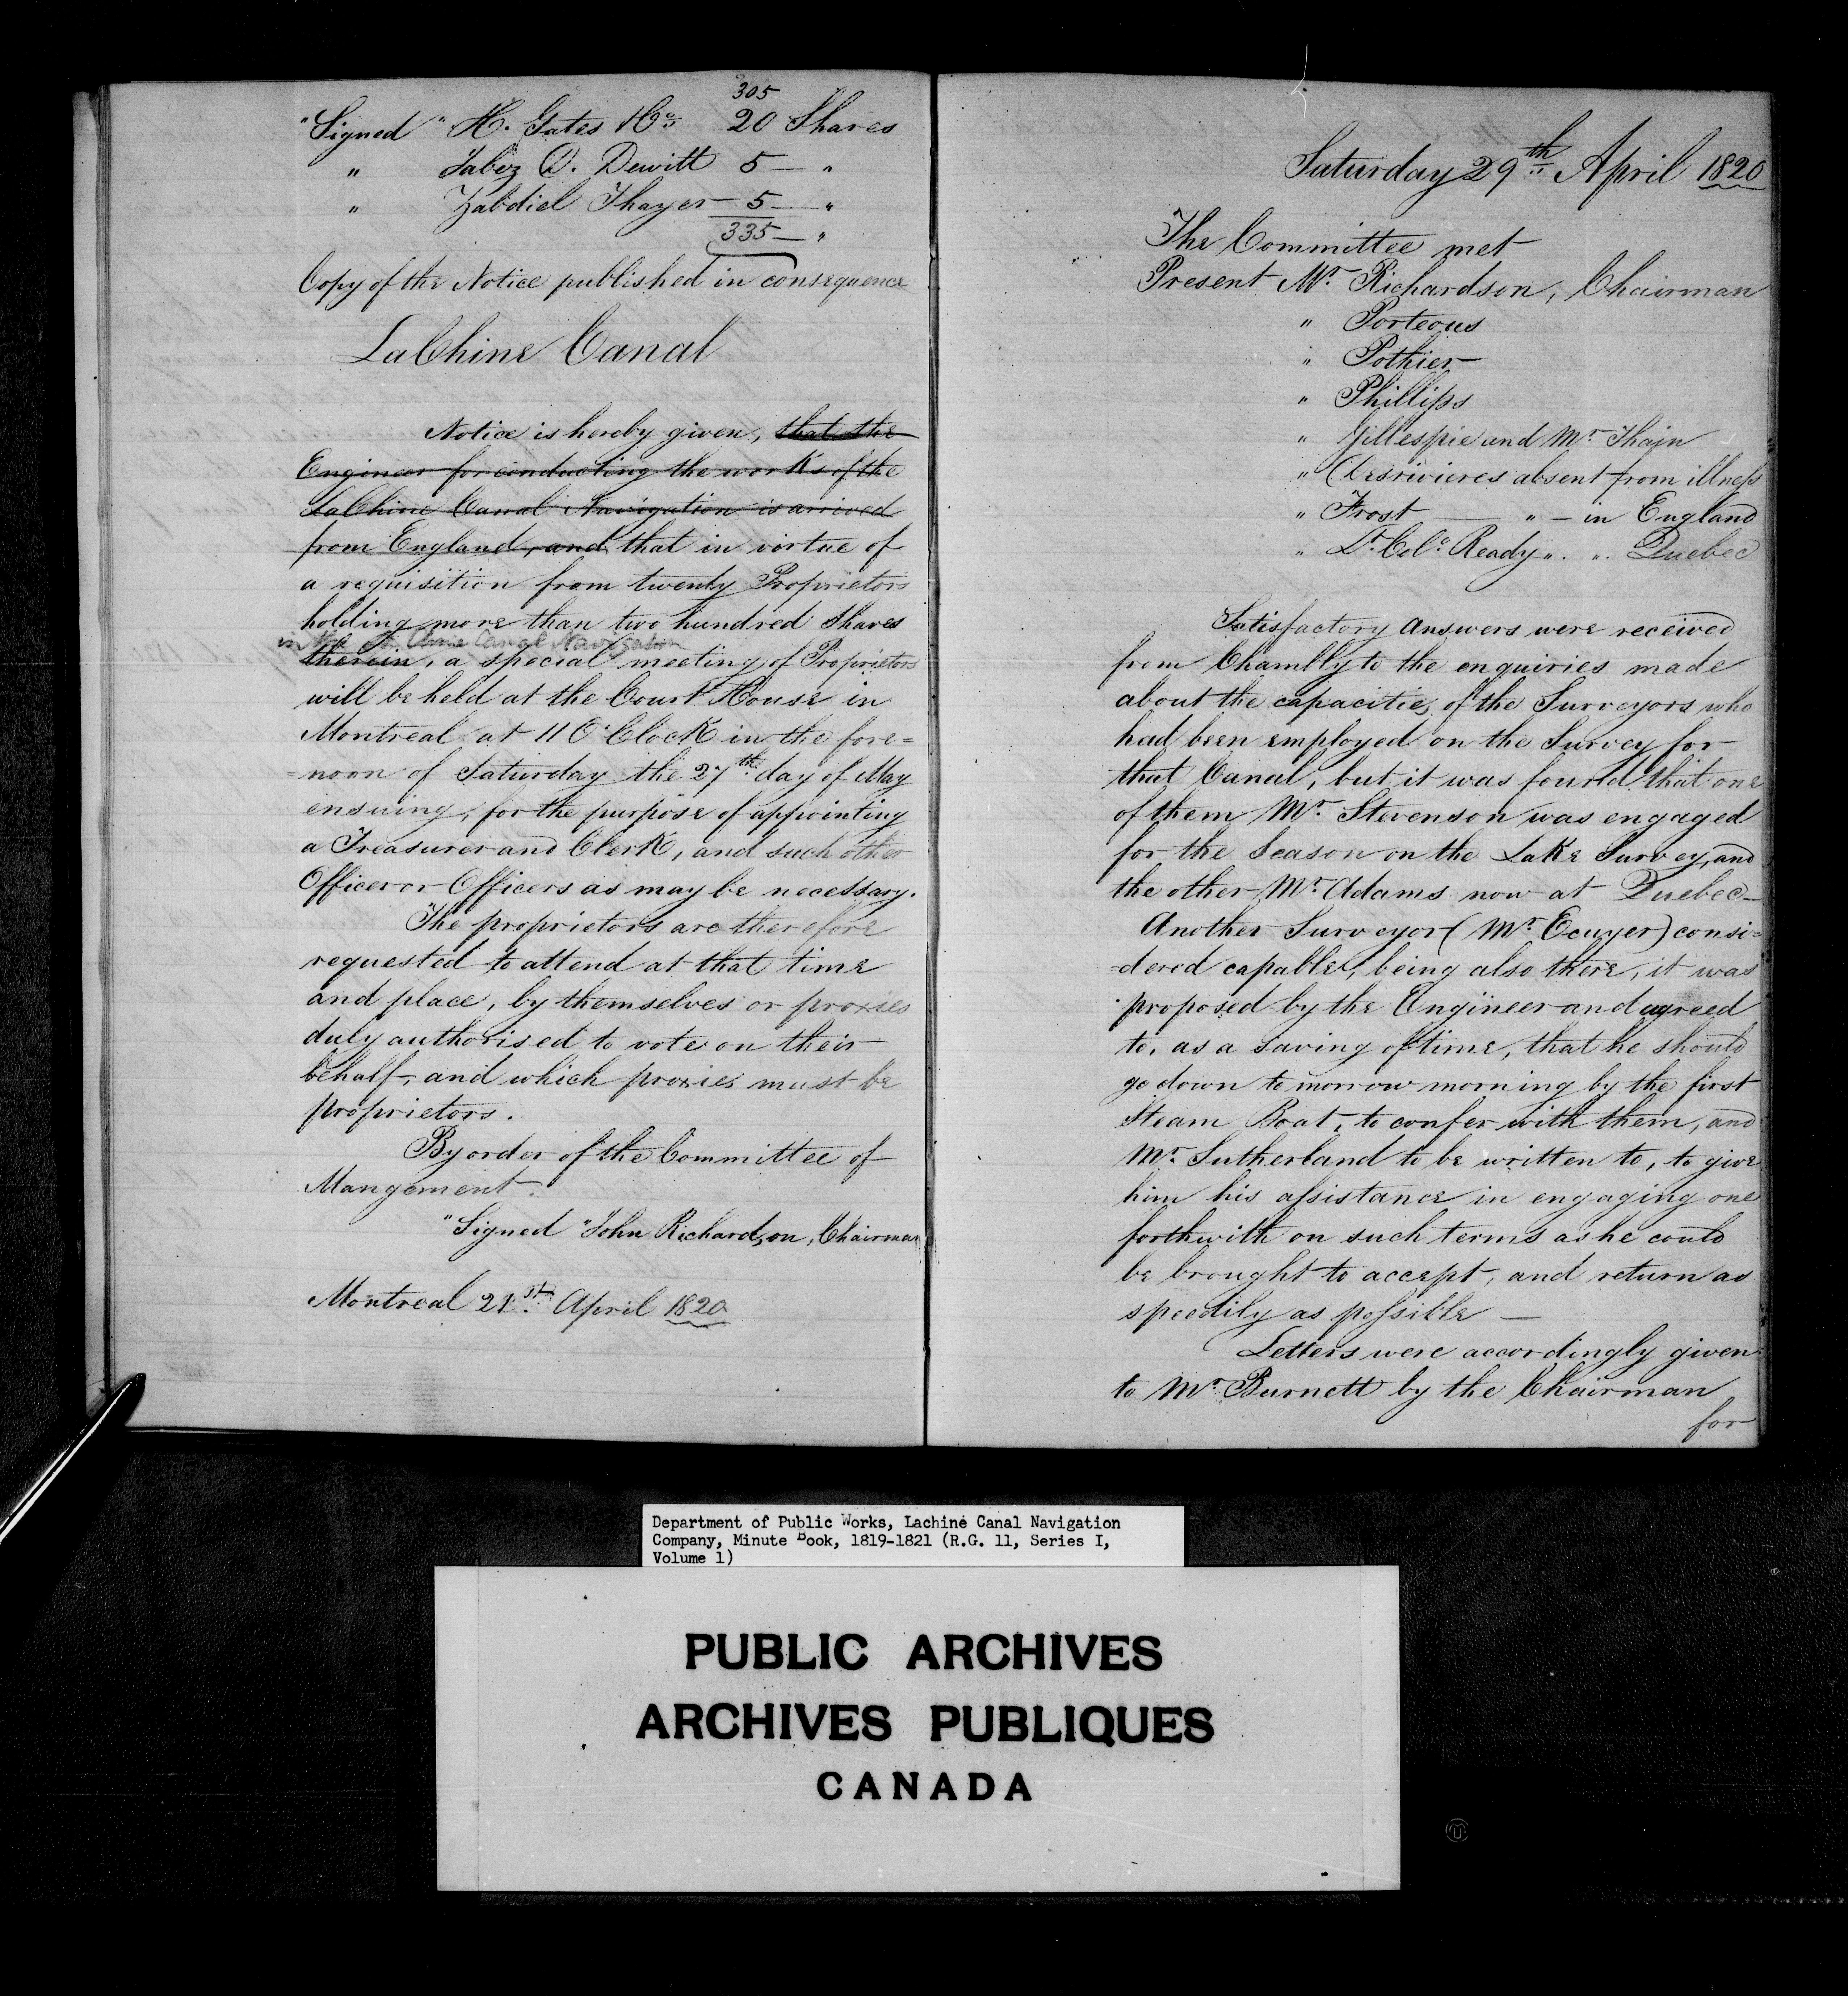 305
"Signed" H. Gates & Co. 20 Shares
" Jabez D. Dewitt 5 — "
" Zabdiel Thayer — 5 — "
335 — "
Copy of the Notice published in consequence
LaChine Canal
Notice is hereby given, that the
Engineer for conducting the works of the
LaChine Canal Navigation is arrived
from England, and that in virtue of
a requisition from twenty Proprietors
holding more than two hundred Shares
in the La Chine Canal Navigation
therein, a special meeting of Proprietors
will be held at the Court House in
Montreal at 11 O'Clock in the fore=
=noon of Saturday the 27th day of May
ensuing, for the purpose of appointing
a Treasurer and Clerk, and such other
Officer or Officers as may be necessary.
The proprietors are therefore
requested to attend at that time
and place, by themselves or proxies
duly authorised to vote on their
behalf, and which proxies must be
proprietors.
By order of the Committee of
Mangement.
"Signed" John Richardson, Chairman
Montreal 21st April 1820
Saturday 29th April 1820
The Committee met
Present Mr. Richardson, Chairman
" Porteous
" Pothier
" Phillips
" Gillespie and Mr. Thain
" Desrivieres absent from illness
" Frost — " — in England
" Lt. Col. Ready " " Quebec
Satisfactory Answers were received
from Chambly to the enquiries made
about the capacities of the Surveyors who
had been employed on the Survey for
that Canal, but it was found that one
of them Mr. Stevenson was engaged
for the Season on the Lake Survey, and
the other Mr. Adams now at Quebec —
Another Surveyor (Mr. Ecuyer) consi=
=dered capable, being also there, it was
proposed by the Engineer and agreed
to, as a saving of time, that he should
go down to morrow morning by the first
Steam Boat, to confer with them, and
Mr. Sutherland to be written to, to give
him his assistance in engaging one
forthwith on such terms as he could
be brought to accept, and return as
speedily as possible —
Letters were accordingly given
to Mr. Burnett by the Chairman
for
Department of Public Works, Lachine Canal Navigation
Company, Minute Book, 1819-1821 (R.G. 11, Series I,
Volume 1)
PUBLIC ARCHIVES
ARCHIVES PUBLIQUES
CANADA